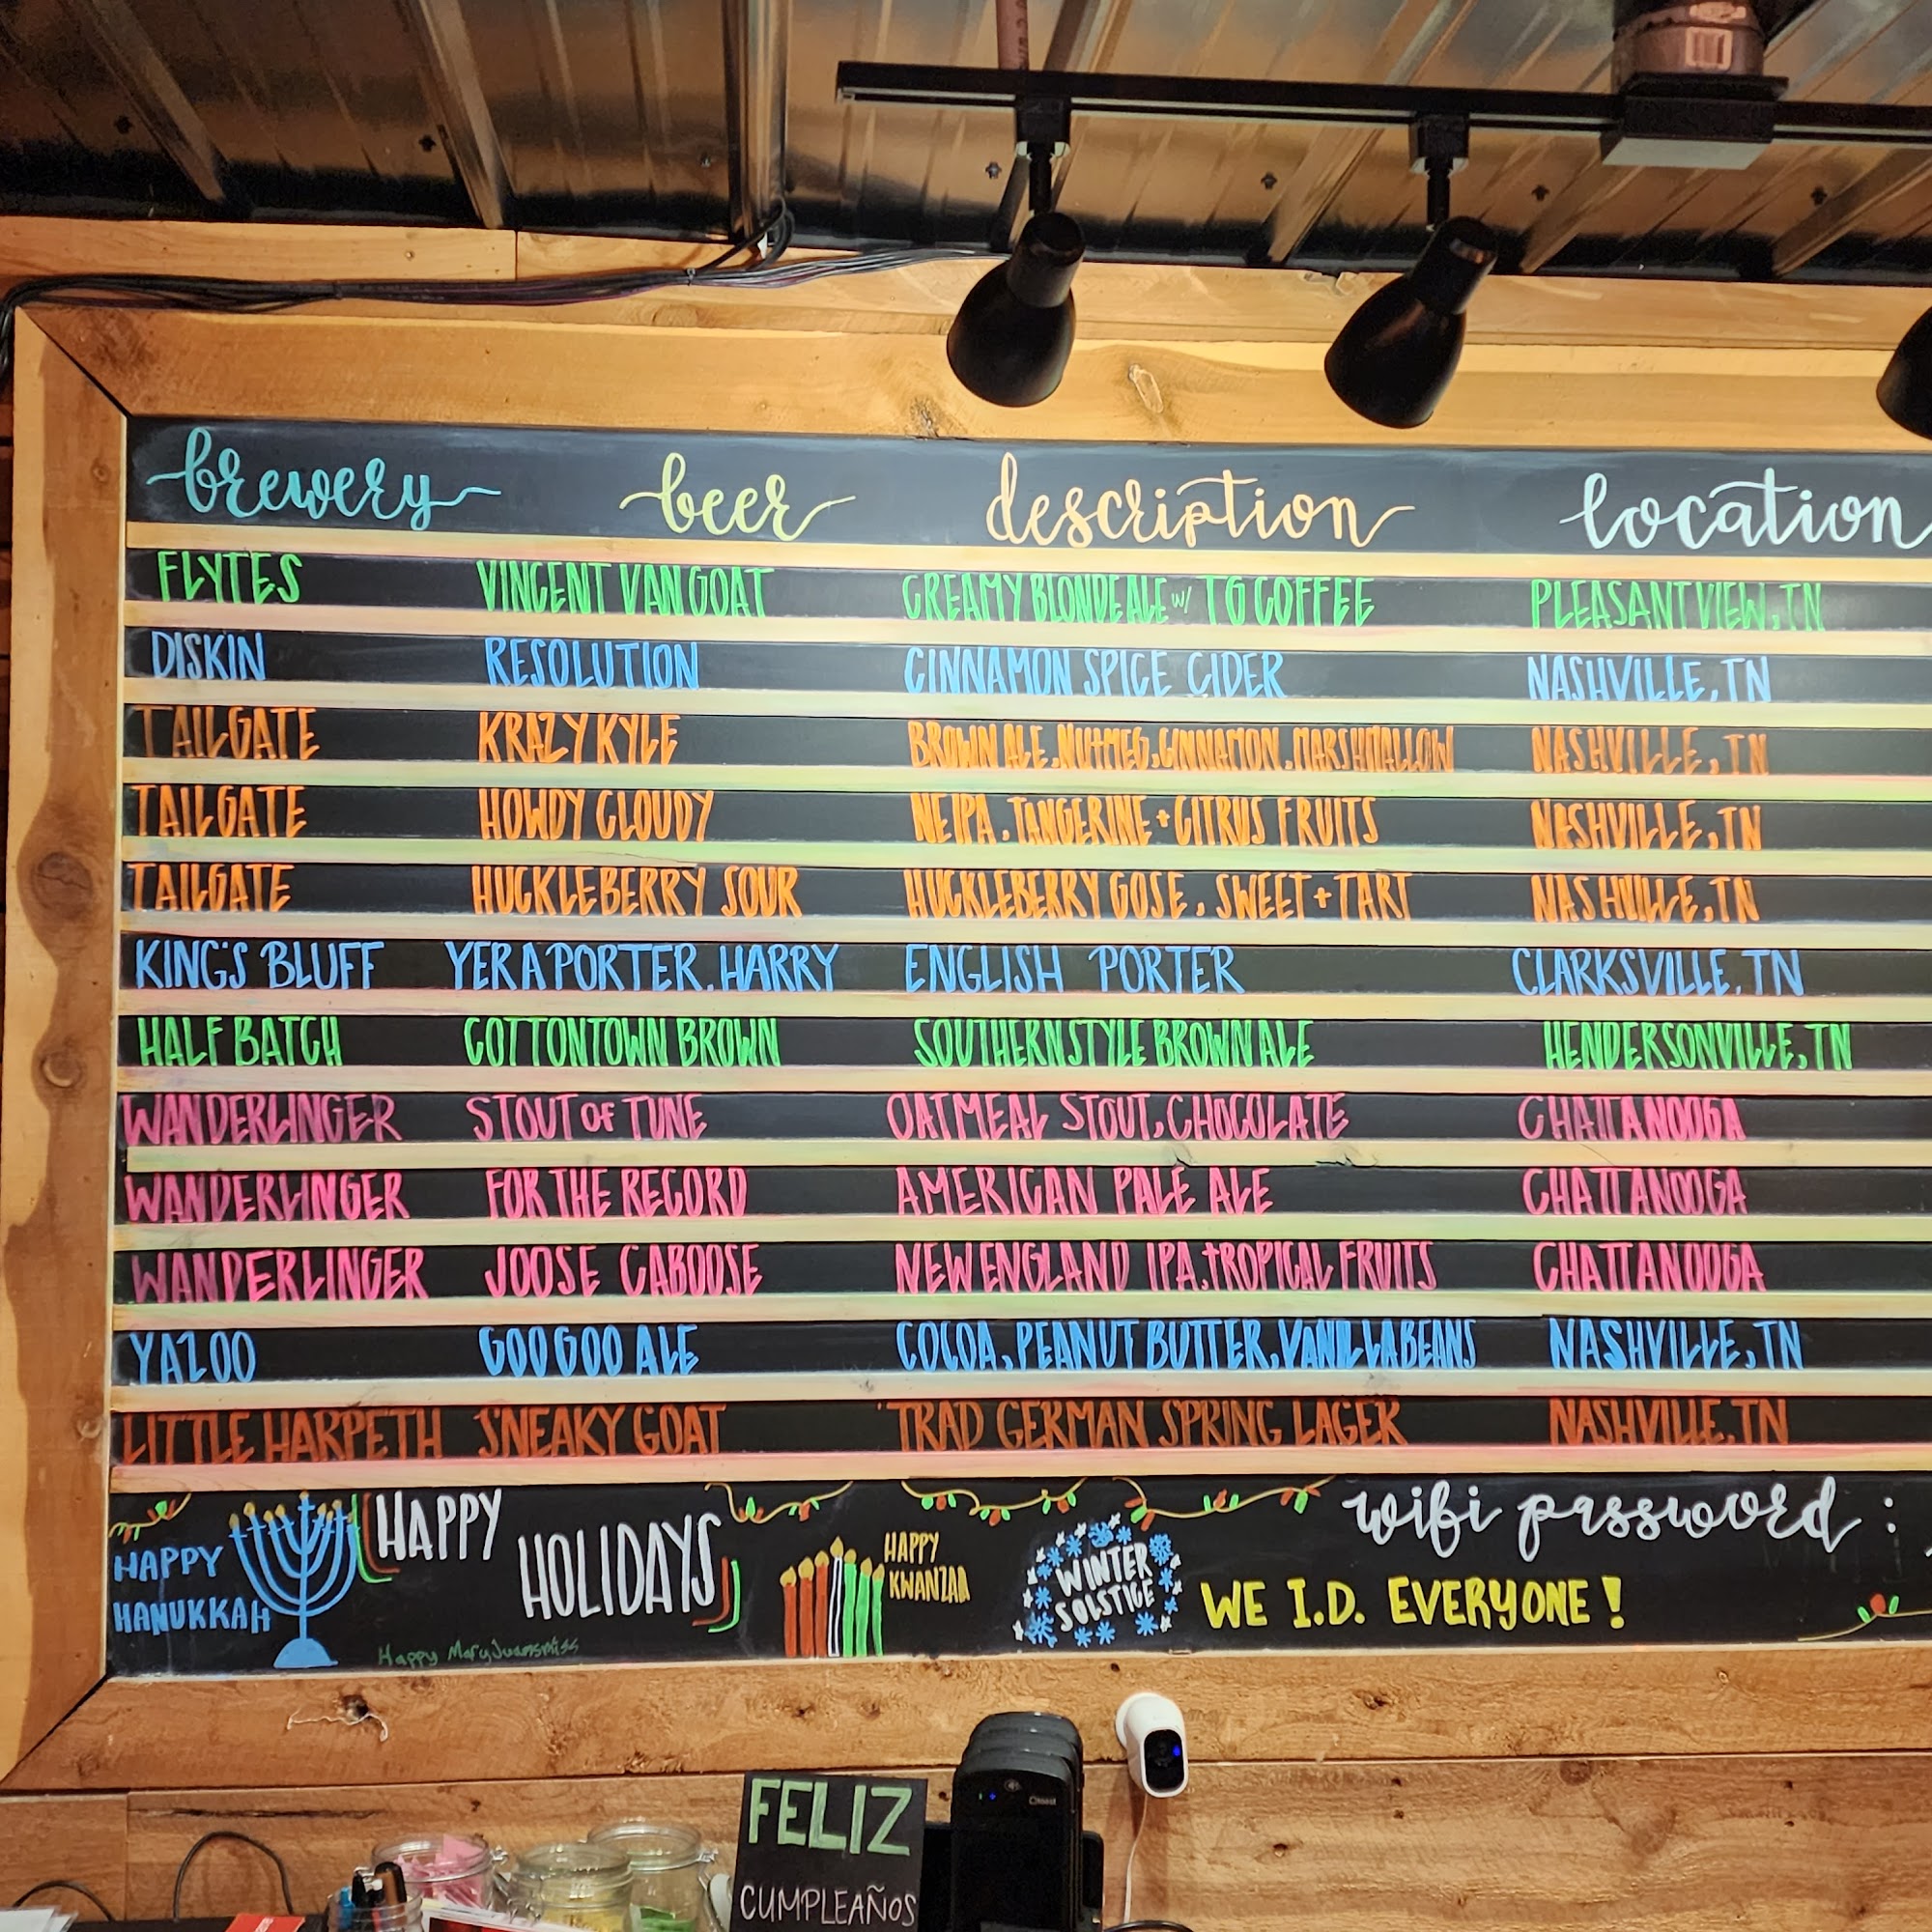 brewery beer description location
FLYTES VINCENT VAN GOAT CREAMY BLONDE ALE w/ TG COFFEE PLEASANT VIEW, TN
DISKIN RESOLUTION CINNAMON SPICE CIDER NASHVILLE, TN
TAILGATE KRAZY KYLE BROWN ALE, NUTMEG, CINNAMON, MARSHMALLOW NASHVILLE, TN
TAILGATE HOWDY CLOUDY NEIPA, TANGERINE + CITRUS FRUITS NASHVILLE, TN
TAILGATE HUCKLEBERRY SOUR HUCKLEBERRY GOSE, SWEET + TART NASHVILLE, TN
KING'S BLUFF YER A PORTER, HARRY ENGLISH PORTER CLARKSVILLE, TN
HALF BATCH COTTONTOWN BROWN SOUTHERN STYLE BROWN ALE HENDERSONVILLE, TN
WANDERLINGER STOUT OF TUNE OATMEAL STOUT, CHOCOLATE CHATTANOOGA
WANDERLINGER FOR THE RECORD AMERICAN PALE ALE CHATTANOOGA
WANDERLINGER JOOSE CABOOSE NEW ENGLAND IPA, TROPICAL FRUITS CHATTANOOGA
YAZOO GOO GOO ALE COCOA, PEANUT BUTTER, VANILLA BEANS NASHVILLE, TN
LITTLE HARPETH SNEAKY GOAT TRAD GERMAN SPRING LAGER NASHVILLE, TN
HAPPY
HANUKKAH
HAPPY
HOLIDAYS
Happy
HAPPY
KWANZAA
WINTER
SOLSTICE
wifi password:
WE I.D. EVERYONE!
FELIZ
CUMPLEAÑOS